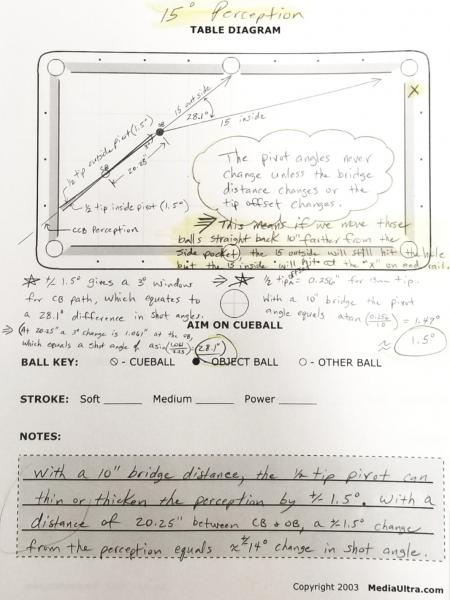 15° Perception
TABLE DIAGRAM
15 outside
28.1°
15 inside
X
1/2 tip outside pivot (1.5°)
3°
20.25"
CB
OB
1/2 tip inside pivot (1.5°)
CCB Perception
The pivot angles never
change unless the bridge
distance changes or the
tip offset changes.
⇒ This means if we move these
balls straight back 10" farther from the
side pocket, the 15 outside will still hit the hole
but the 15 inside will hit at the "x" on end rail.
* +/- 1.5° gives a 3° window
for CB path, which equates to
a 28.1° difference in shot angles.
⇒ (At 20.25" a 3° change is 1.061" at the OB,
which equals a shot angle of asin(1.061/2.25) = 28.1°)
⇒ * 1/2 tip offset = 0.256" for 13mm tip.
With a 10" bridge the pivot
angle equals atan(0.256/10) = 1.47°
≈ 1.5°
AIM ON CUEBALL
BALL KEY: ⦸ - CUEBALL ● - OBJECT BALL ○ - OTHER BALL
STROKE: Soft ______ Medium ______ Power ______
NOTES:
With a 10" bridge distance, the 1/2 tip pivot can
thin or thicken the perception by +/- 1.5°. With a
distance of 20.25" between CB & OB, a +/- 1.5° change
from the perception equals ≈ +/- 14° change in shot angle.
Copyright 2003 MediaUltra.com